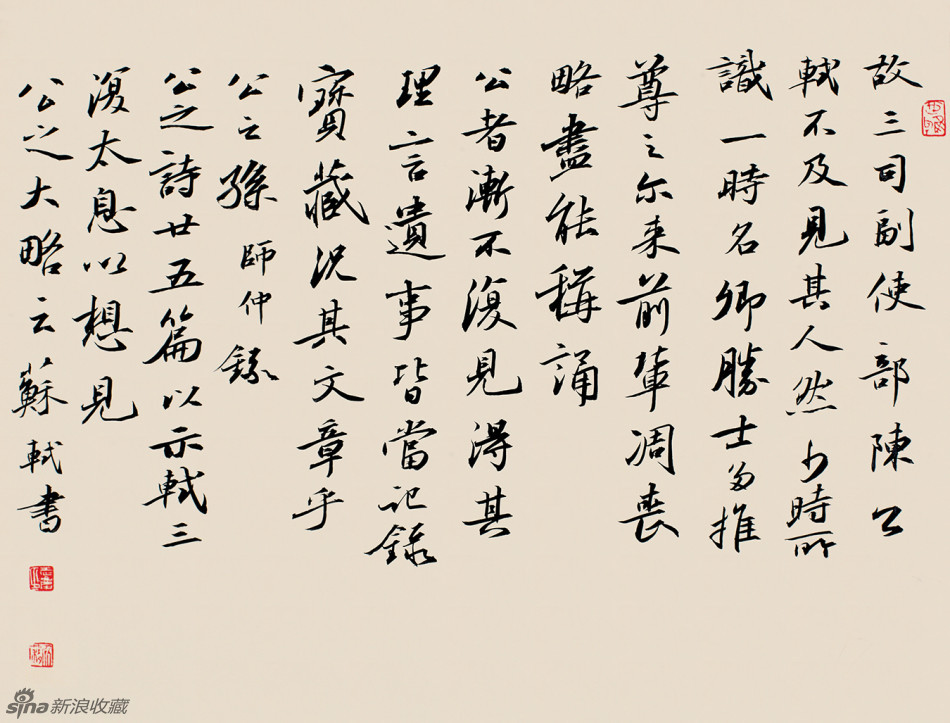 故三司副使部陳公
軾不及見其人然少時所
識一時名卿勝士多推
尊之尔来前軰凋喪
略盡能稱誦
公者漸不復見得其
理言遺事皆當記錄
寶藏況其文章乎
公之孫師仲錄
公之詩廿五篇以示軾三
復太息以想見
公之大略云蘇軾書
sina新浪收藏